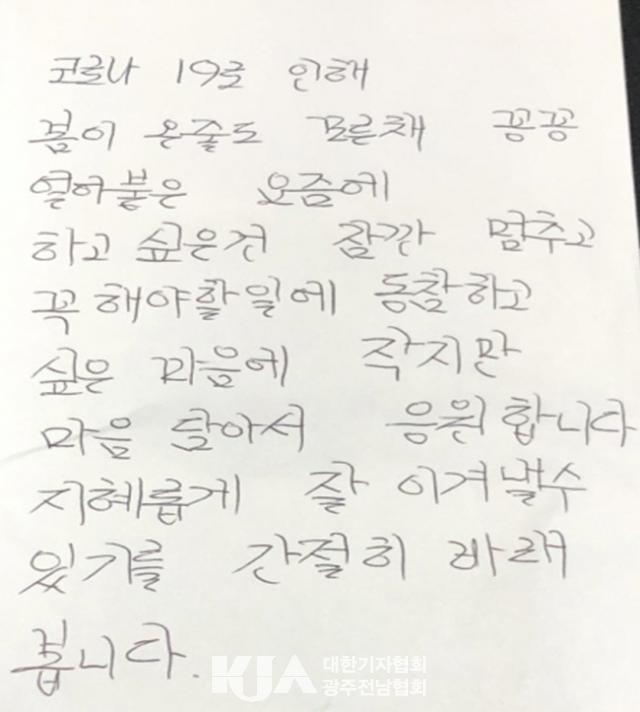 코로나 19로 인해
봄이 온줄도 모른채 꽁꽁
얼어붙은 요즘에
하고 싶은건 잠깐 멈추고
꼭 해야할일에 동참하고
싶은 마음에 작지만
마음 담아서 응원합니다
지혜롭게 잘 이겨낼수
있기를 간절히 바래
봅니다.
KJA 대한기자협회
광주전남협회